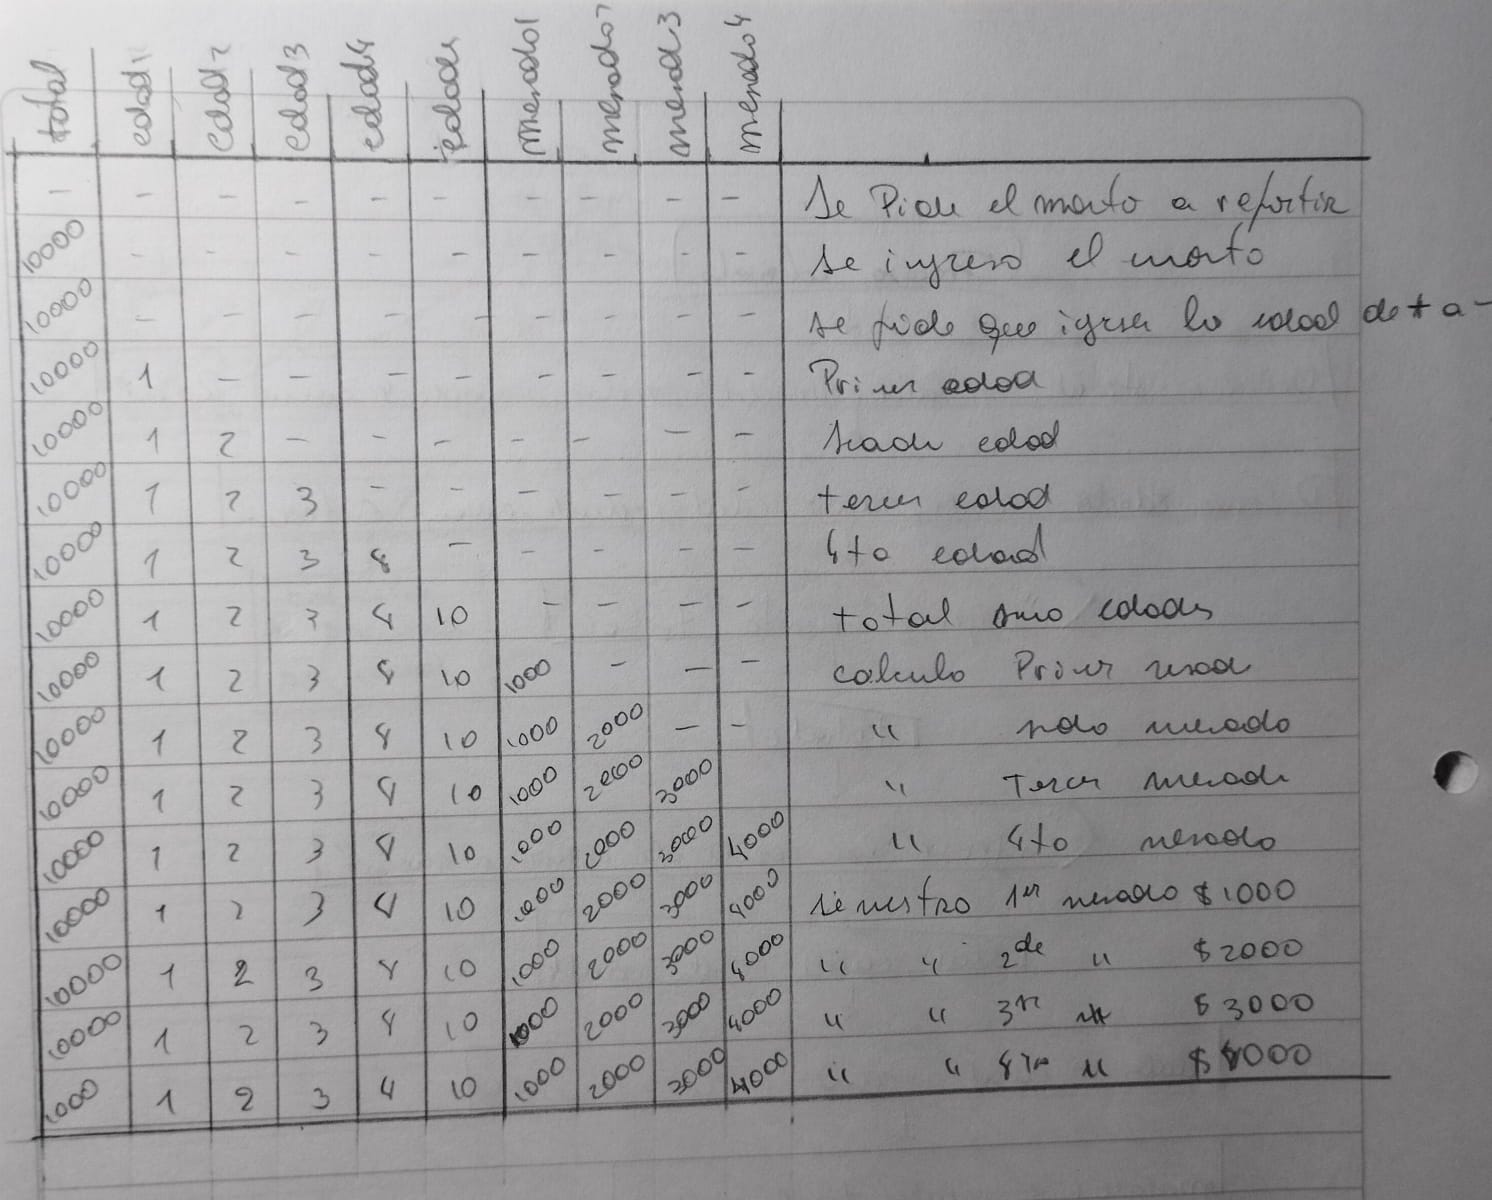 total edad1 edad2 edad3 edad4 edades menado1 menado2 menad3 menado4
- - - - - - - - - - Se Pide el monto a repartir
10000 - - - - - - - - - se ingreso el monto
10000 - - - - - - - - - se pide que igrese la edad de + a -
10000 1 - - - - - - - - Primer edad
10000 1 2 - - - - - - - edad
10000 1 2 3 - - - - - - tercer edad
10000 1 2 3 4 - - - - - 4to edad
10000 1 2 3 4 10 - - - - total suma edades
10000 1 2 3 4 10 1000 - - - calculo Primer
10000 1 2 3 4 10 1000 2000 - - " ndo menado
10000 1 2 3 4 10 1000 2000 3000 " Tercer menado
10000 1 2 3 4 10 1000 2000 3000 4000 " 4to menado
10000 1 2 3 4 10 1000 2000 3000 4000 se mestra 1er menado $ 1000
10000 1 2 3 4 10 1000 2000 3000 4000 " " 2do " $ 2000
10000 1 2 3 4 10 1000 2000 3000 4000 " " 3er " $ 3000
1000 1 2 3 4 10 1000 2000 3000 4000 " " 4to " $ 4000